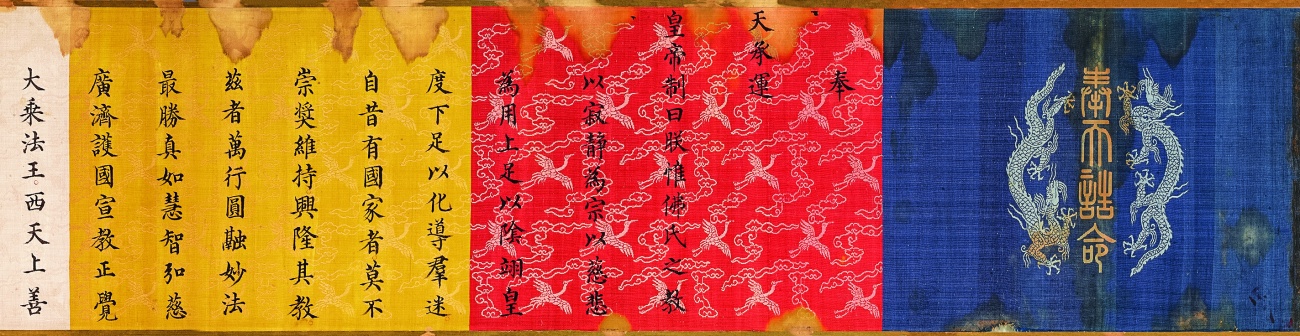 奉天誥命
奉
天承運
皇帝制曰朕惟佛氏之教
以寂靜為宗以慈悲
為用上足以陰翊皇
度下足以化導羣迷
自昔有國家者莫不
崇奬維持興隆其教
茲者萬行圓融妙法
最勝真如慧智弘慈
廣濟護國宣教正覺
大乘法王西天上善